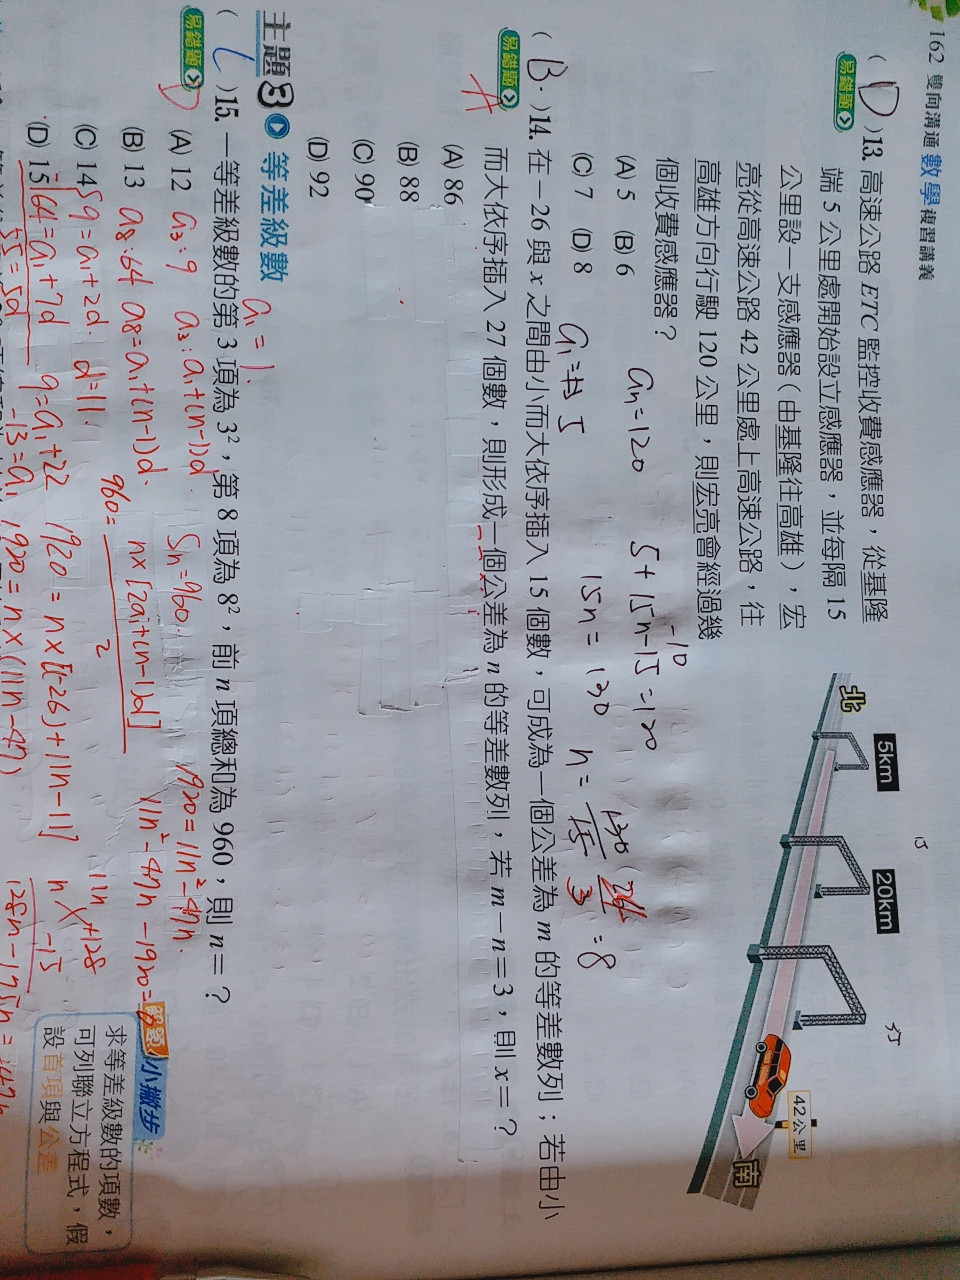 162 雙向溝通 數學 複習講義
( D )13. 高速公路 ETC 監控收費感應器，從基隆
易錯題
端 5 公里處開始設立感應器，並每隔 15
公里設一支感應器（由基隆往高雄），宏
亮從高速公路 42 公里處上高速公路，往
高雄方向行駛 120 公里，則宏亮會經過幾
個收費感應器？
(A) 5 (B) 6
(C) 7 (D) 8
an=120
5+15n-15=120
-10
15n=130
n=
=8
北
5km
20km
42公里
南
15
( B. )14. 在－26 與 x 之間由小而大依序插入 15 個數，可成為一個公差為 m 的等差數列；若由小
易錯題
而大依序插入 27 個數，則形成一個公差為 n 的等差數列，若 m－n＝3，則 x＝？
(A) 86
(B) 88
(C) 90
(D) 92
主題3 等差級數
a1=1.
( )15. 一等差級數的第 3 項為 3²，第 8 項為 8²，前 n 項總和為 960，則 n＝？
易錯題
(A) 12
(B) 13
(C) 14
(D) 15
a3:9 a3:a1+(n-1)d
a8:64 a8=a1+(n-1)d.
9=a1+2d
64=a1+7d
55=5d
d=11.
9=a1+22
-13=a1
Sn=960.
960=
n×[2a1+(n-1)d]
2
1920=n×[(-26)+11n-11]
1920=n×(11n-47)
1920=11n²-47n.
11n²-47n-1920=0
11n +128
n -15
解題小撇步
求等差級數的項數，
可列聯立方程式，假
設首項與公差